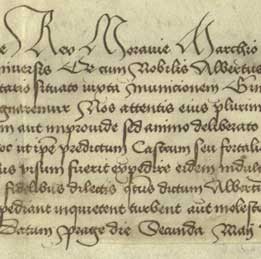 e Rex Moravie Marchio
niversis Et cum Nobilis Albertus
tario situato iuxta municionem
gnaremur Nos attentis eius plurim
m aut improvide sed animo deliberato
oc ut ipse predictum Castrum seu fortali
us visum fuerit expedire eidem indul
fidelibus dilectis dictum Alberti
pediant inquietent turbent aut molest
Datum Prage die Secunda Maij